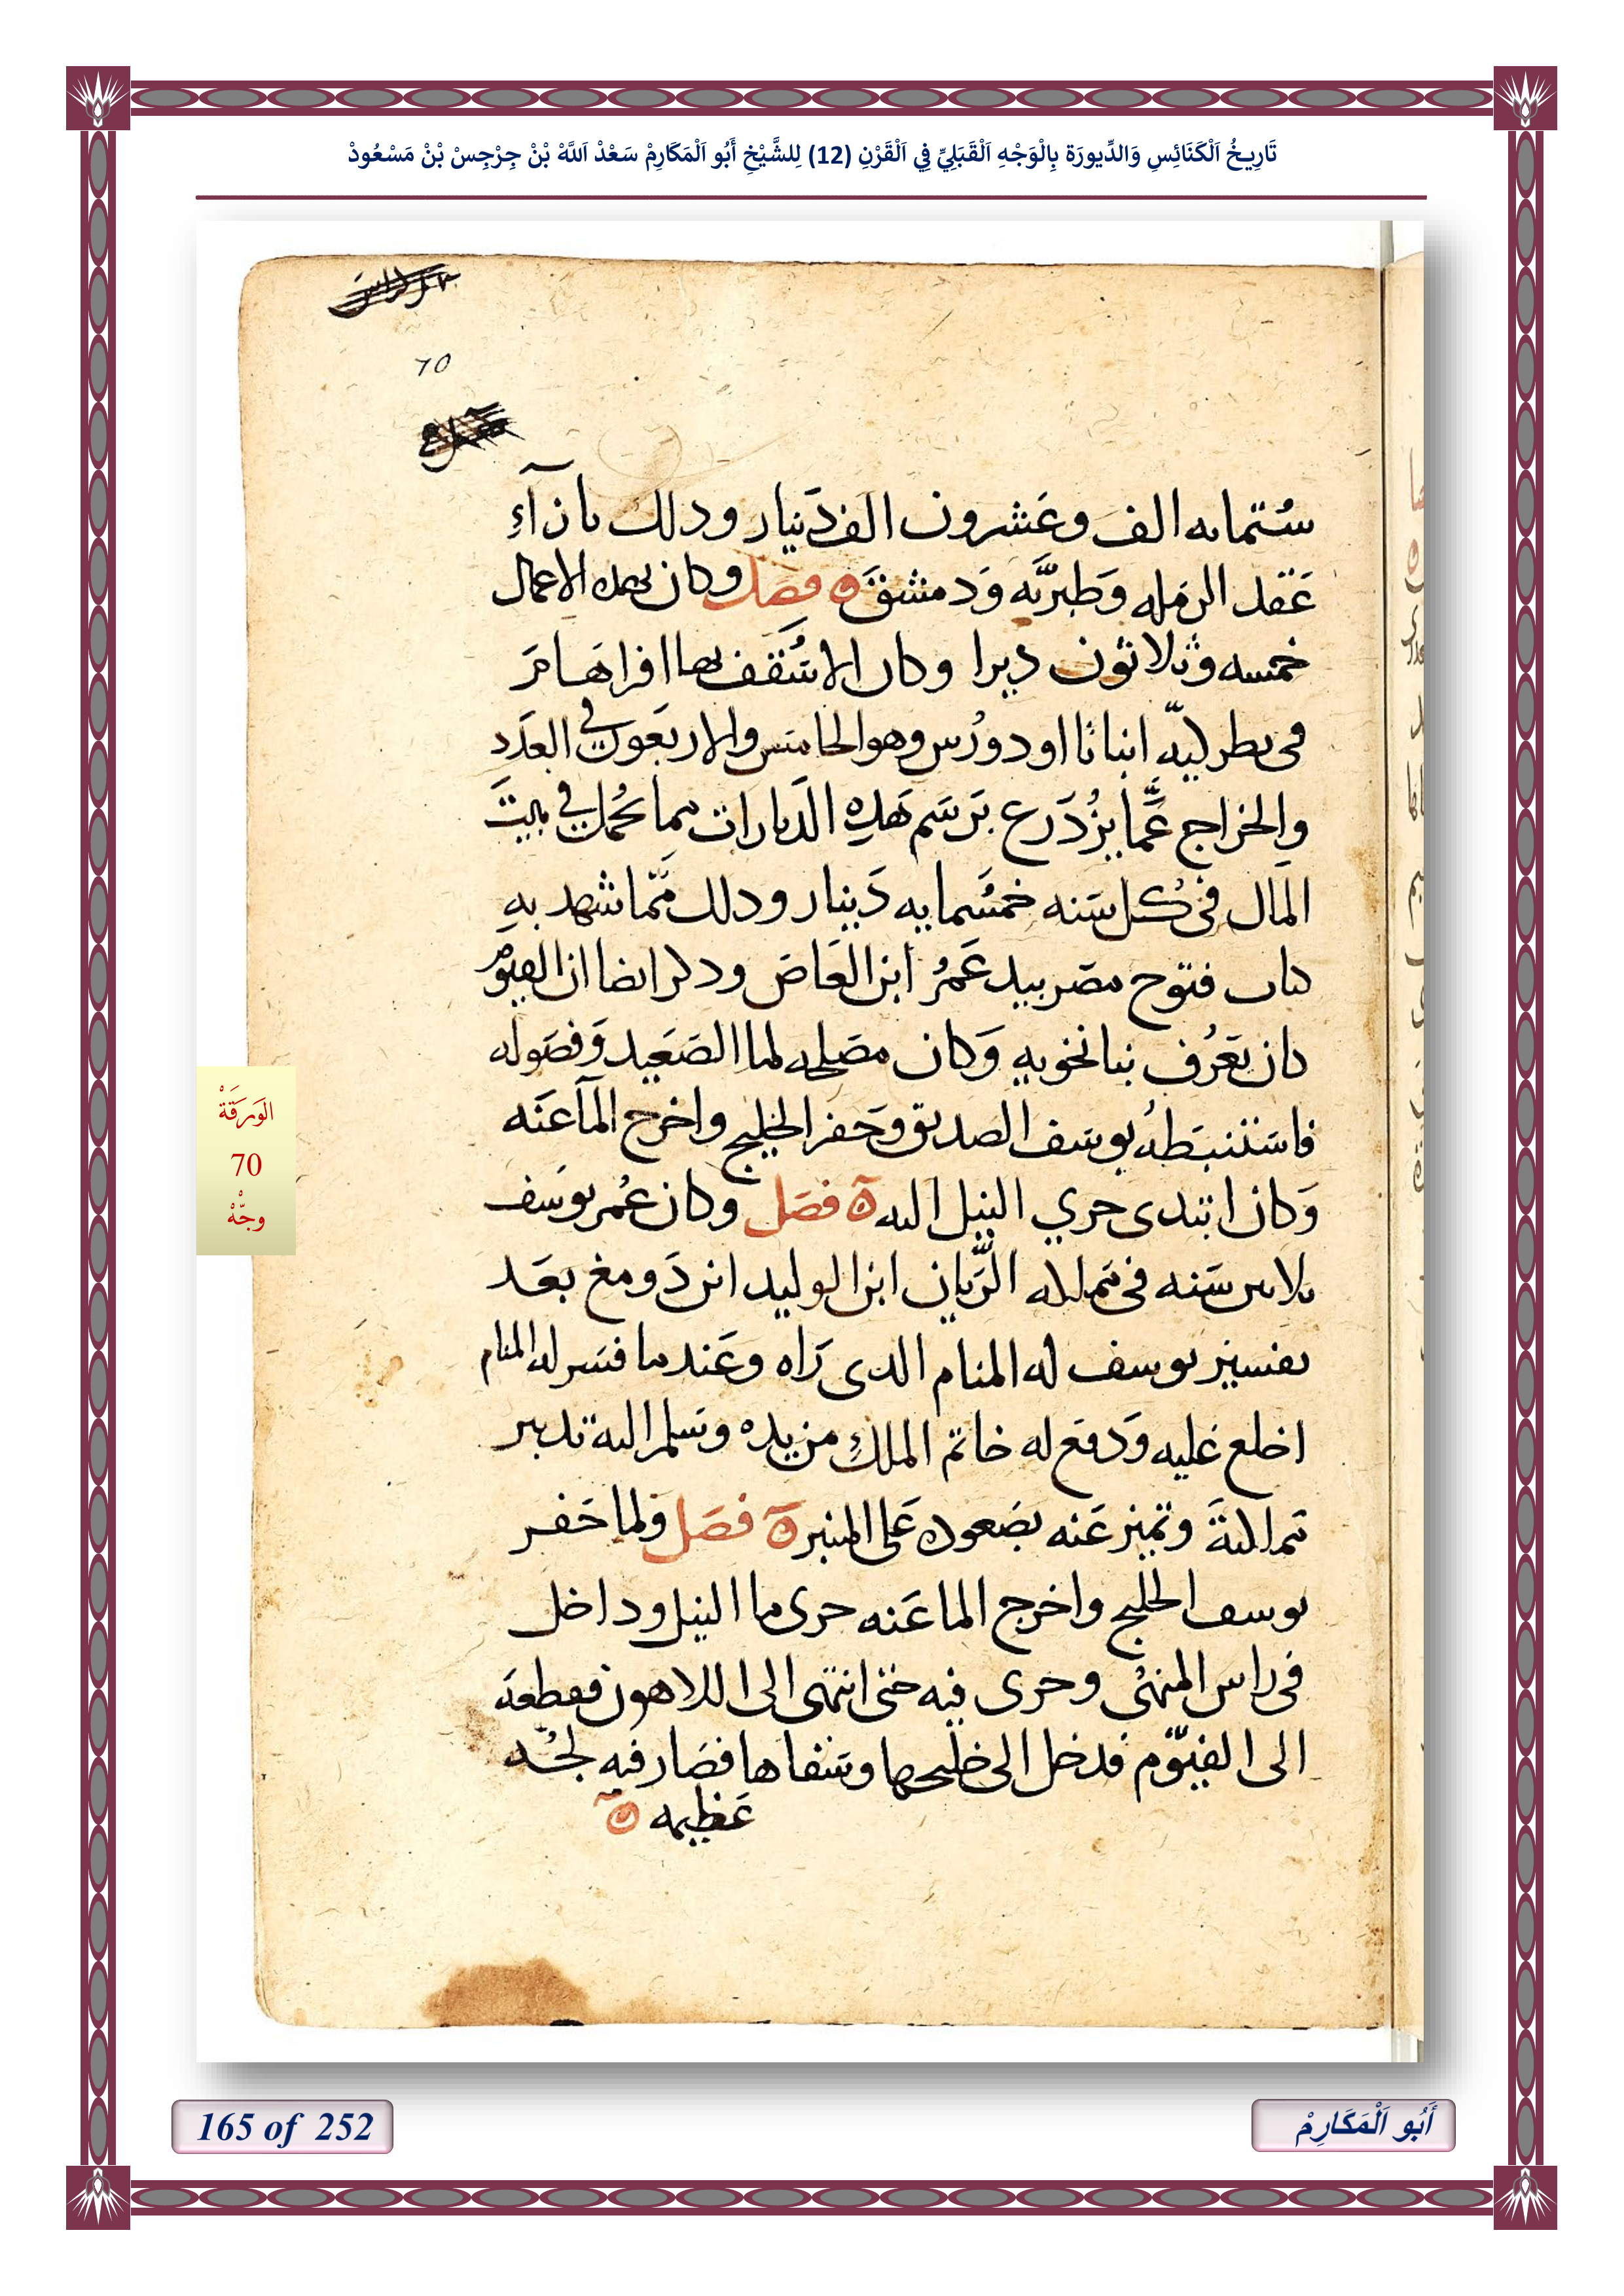 تَارِيخُ اَلْكَنَائِسِ وَالدِّيورَة بِالْوَجْهِ اَلْقَبَلِيِّ فِي اَلْقَرْنِ (12) لِلشَّيْخِ أَبُو اَلْمَكَارِمْ سَعْدْ اَللَّهْ بْنْ جِرْجِسْ بْنْ مَسْعُودْ
70
ستمايه الف وعشرون الف دينار ودلك بازآء
عقد الرمله وطبريّه ودمشق ه فصل وكان بهده الاعمال
خمسه وثلاثون ديرا وكان الاسقف بها افراهام
فى بطركيّه انبا ثااودورس وهو الخامس والاربعون فى العدد
والخراج عمّا يزدرع برسم هده الديارات مما يحمل فى بيت
المال فى كل سنه خمسمايه دينار ودلك ممّا شهد به
كتاب فتوح مصر بيد عمر ابن العاص ودكر ايضا ان الفيوم
كان يعرف وكان مصلحه لما الصعيد وفصوله
فاستنبطه يوسف الصديق وحفر الخليج واخرج المآ عنه
وكان ابتدى جري النيل اليه ه فصل وكان عمر يوسف
ثلاثين سنه فى مملكه الرّيان ابن الوليد ابن دومغ بعد
تفسير يوسف له المنام الدى راه وعندما فسر له المنام
اخلع عليه ودفع له خاتم الملك من يده وسلم اليه تدبير
مملكته وتميز عنه بصعوده على المنبر ه فصل ولما حفر
يوسف الخليج واخرج الما عنه جرى ما النيل وداخل
فى راس المنهى وجرى فيه حتى انتهى الى اللاهون فقطعه
الى الفيّوم فدخل الى خليجها وسقاها فصار فيه لجّه
عظيمه ه
الوَرَقَةْ
70
وجّهْ
165 of 252
أَبُو اَلْمَكَارِمْ